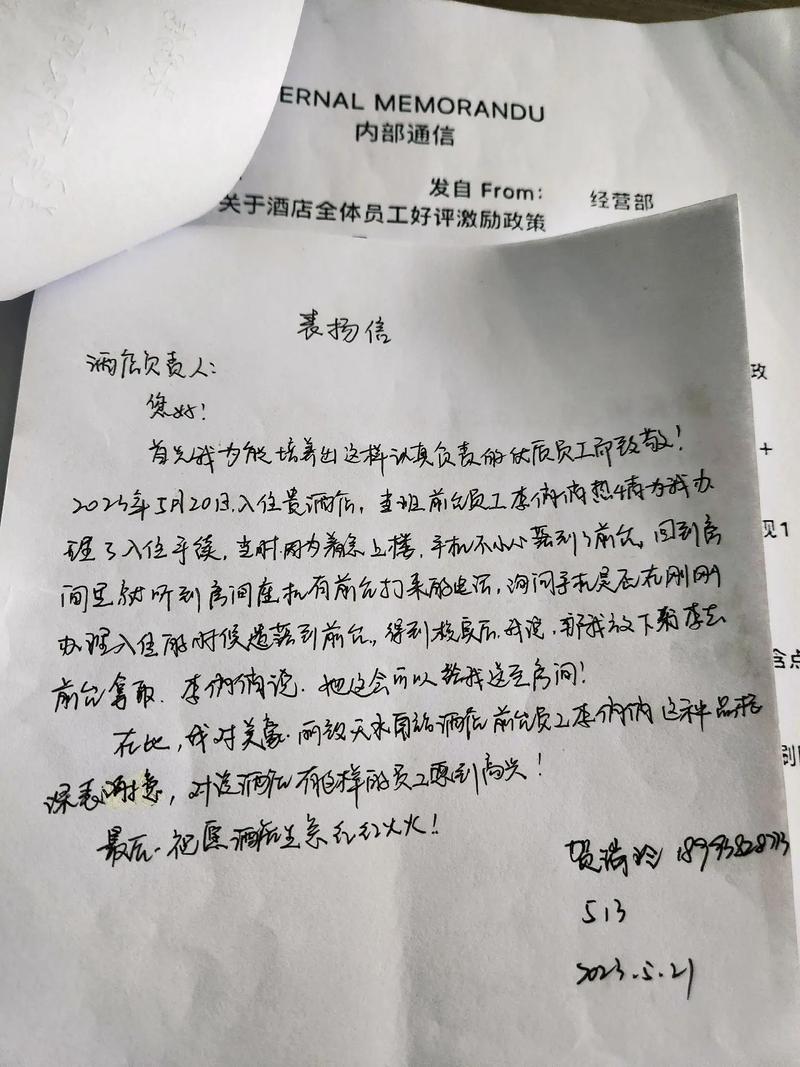 ERNAL MEMORANDU
内部通信
发自 From: 经营部
关于酒店全体员工好评激励政策
政
+
现1
含点
别
表扬信
酒店负责人:
您好!
首先我为能培养出这样认真负责的优质员工而致敬!
2023年5月20日,入住贵酒店,当班前台员工李俩俩热情为我办
理了入住手续,当时因为着急上楼,手机不小心落到了前台,回到房
间里就听到房间座机有前台打来的电话,询问手机是否在刚刚
办理入住的时候遗落到前台,得到核实后,我说,那我放下东西去
前台拿取.李俩俩说.她这会可以给我送至房间!
在此,我对美豪·丽致天水酒店前台员工李俩俩这种品格
深表谢意,对该酒店有这样的员工感到高兴!
最后.祝愿酒店生意红红火火!
513
2023.5.21